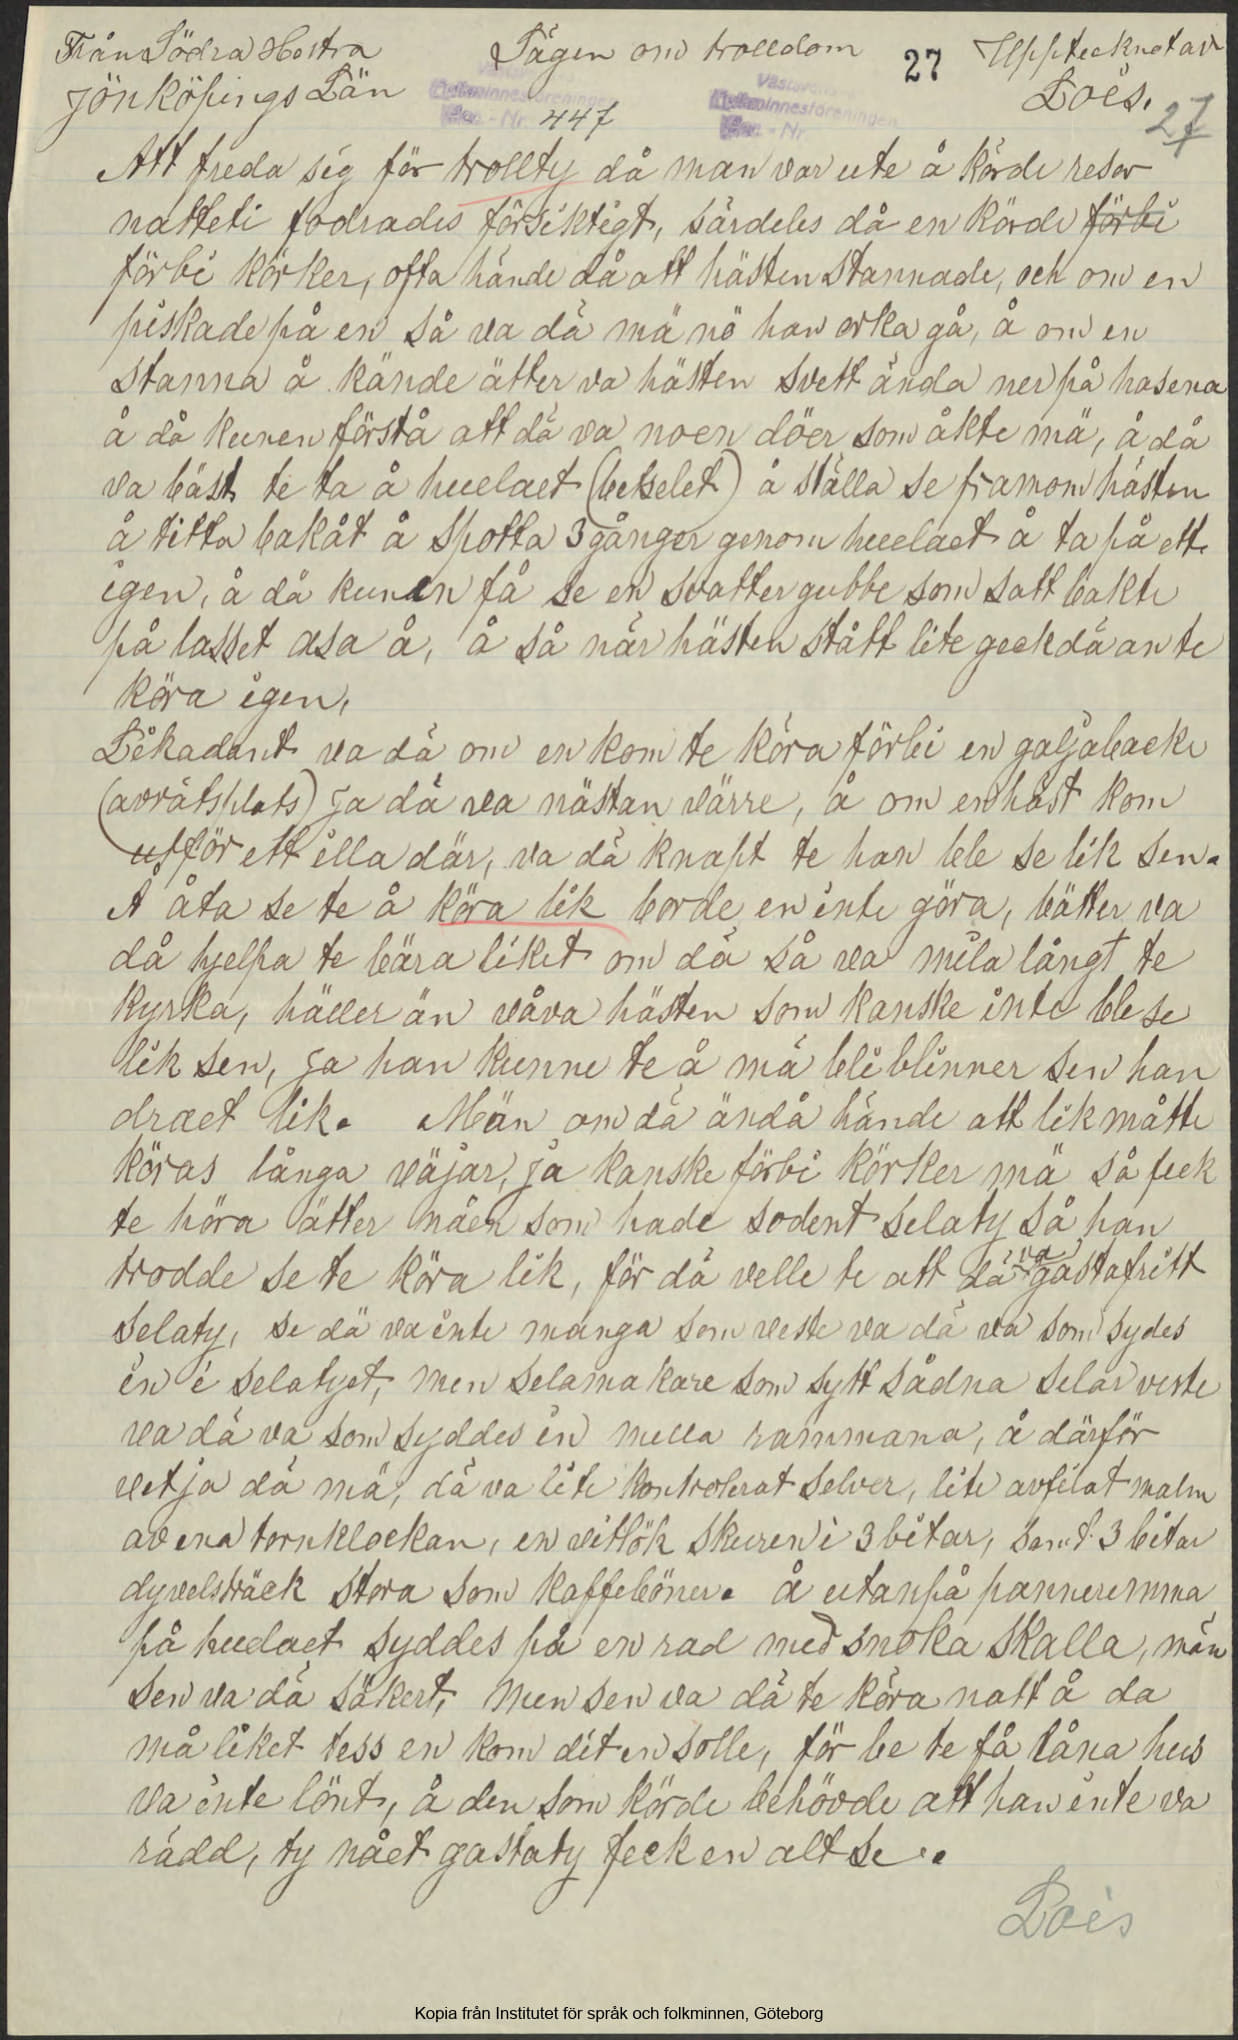 Från Södra Hestra Sägen om trolldom 27 Upptecknat av
Jönköpings Län Loës.
Västsvenska Folkminnesföreningen Acc. - Nr. 447
27
Att freda sig för trollty då man var ute å körde resor
natteti fodrades försiktigt, särdeles då en körde förbi
förbi körker, ofta hände då att hästen stannade, och om en
piskade på en så va dä mä nö han orka gå, å om en
stanna å kände ätter va hästen svett ända ner på hasena
å då kunen förstå att dä va noen döer som åkte mä, å då
va bäst te ta å huelaet (betselet) å ställa se framom hästen
å titta bakåt å spotta 3 gånger genom huelaet å ta på ett
igen, å då kunen få se en svatter gubbe som satt bakte
på lasset asa å, å så när hästen stått lite geck dä an te
köra igen,
Likadant va dä om en kom te köra förbi en galjabacke
(avrätsplats) ja dä va nästan värre, å om en häst kom
utför ett illa där, va dä knapt te han ble se lik sen.
Å åta se te å köra lik borde en inte göra, bätter va
då hjelpa te bära liket om dä så va mila långt te
kyrka, häller än våva hästen som kanske inte ble se
lik sen, ja han kunne te å mä bli blinner sen han
draet lik. Män om dä ändå hände att lik måtte
köras långa väjar, ja kanske förbi körker mä så feck
te höra ätter nåen som hade sodent selaty så han
trodde se te köra lik, för dä velle te att dä va gastafritt
selaty, se dä va inte manga som veste va dä va som sydes
in i selatyet, men selamakare som sytt sådna selar veste
va dä va som syddes in mella rammana, å därför
vet ja dä mä, dä va lite kontrolerat selver, lite avfilat malm
av ena tornklockan, en vitlök skuren i 3 bitar, samt 3 bitar
dyvelsträck stora som kaffebönor. å utanpå panneremma
på huelaet syddes på en rad med snoka skalla, män
sen va dä säkert, men sen va dä te köra natt å da
må liket tess en kom dit en solle, för be te få låna hus
va inte lönt, å den som körde behövde att han inte va
rädd, ty nået gastaty feck en alt se..
Loës
Kopia från Institutet för språk och folkminnen, Göteborg